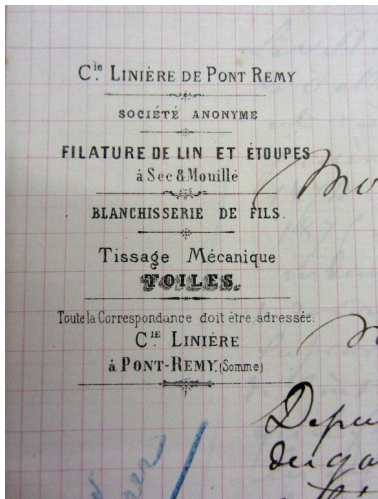 Cie. LINIÈRE DE PONT REMY
SOCIÉTÉ ANONYME
FILATURE DE LIN ET ÉTOUPES
á Sec & Mouillé
BLANCHISSERIE DE FILS.
Tissage Mécanique
TOILES.
Toute la Correspondance doit être adressée:
CIE LINIÈRE
á PONT-REMY. (Somme)